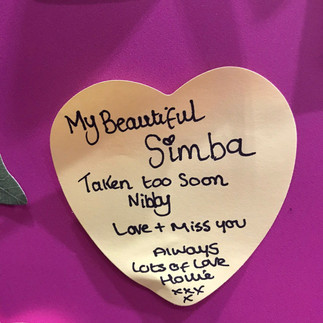 My Beautiful
Simba
Taken too Soon
Nibby
Love + Miss you
Always
Lots of Love
xxx
x